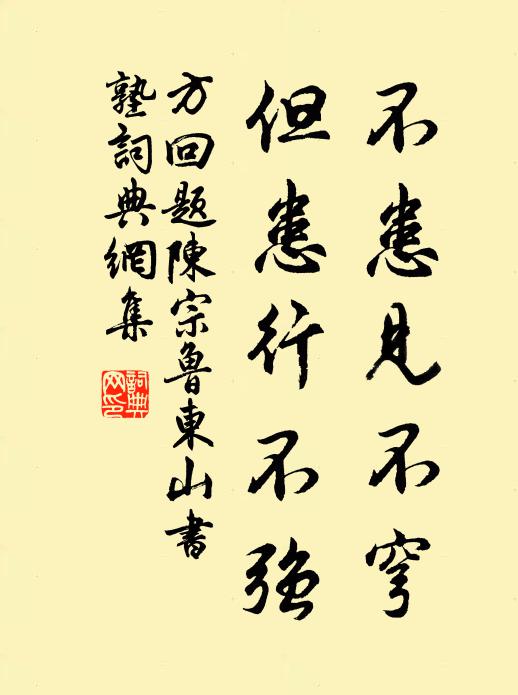 不患見不穹
但患行不強
方回題陳宗魯東山書
塾詞典網集
詞典
网印